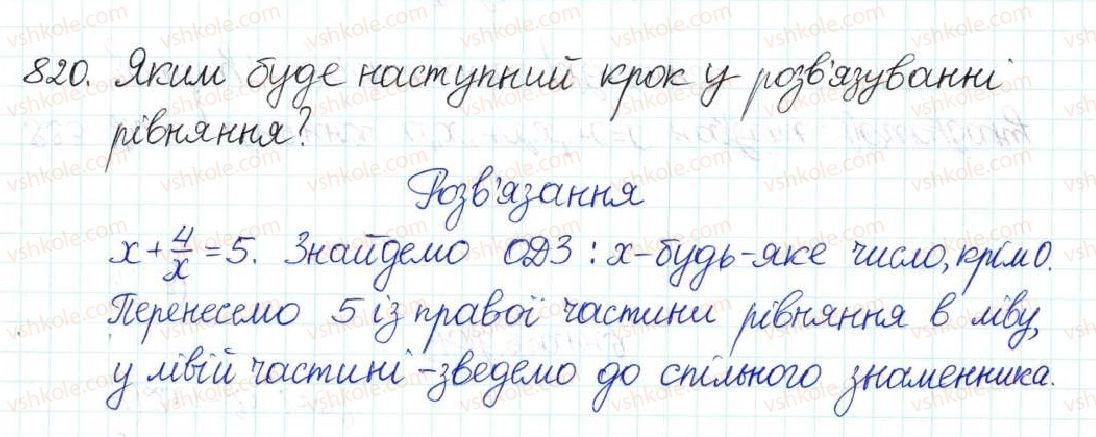 820. Яким буде наступний крок у розв'язуванні
рівняння?
Розв'язання
x + 4/x = 5. Знайдемо ОДЗ : x - будь-яке число, крім 0.
Перенесемо 5 із правої частини рівняння в ліву,
у лівій частині - зведемо до спільного знаменника.